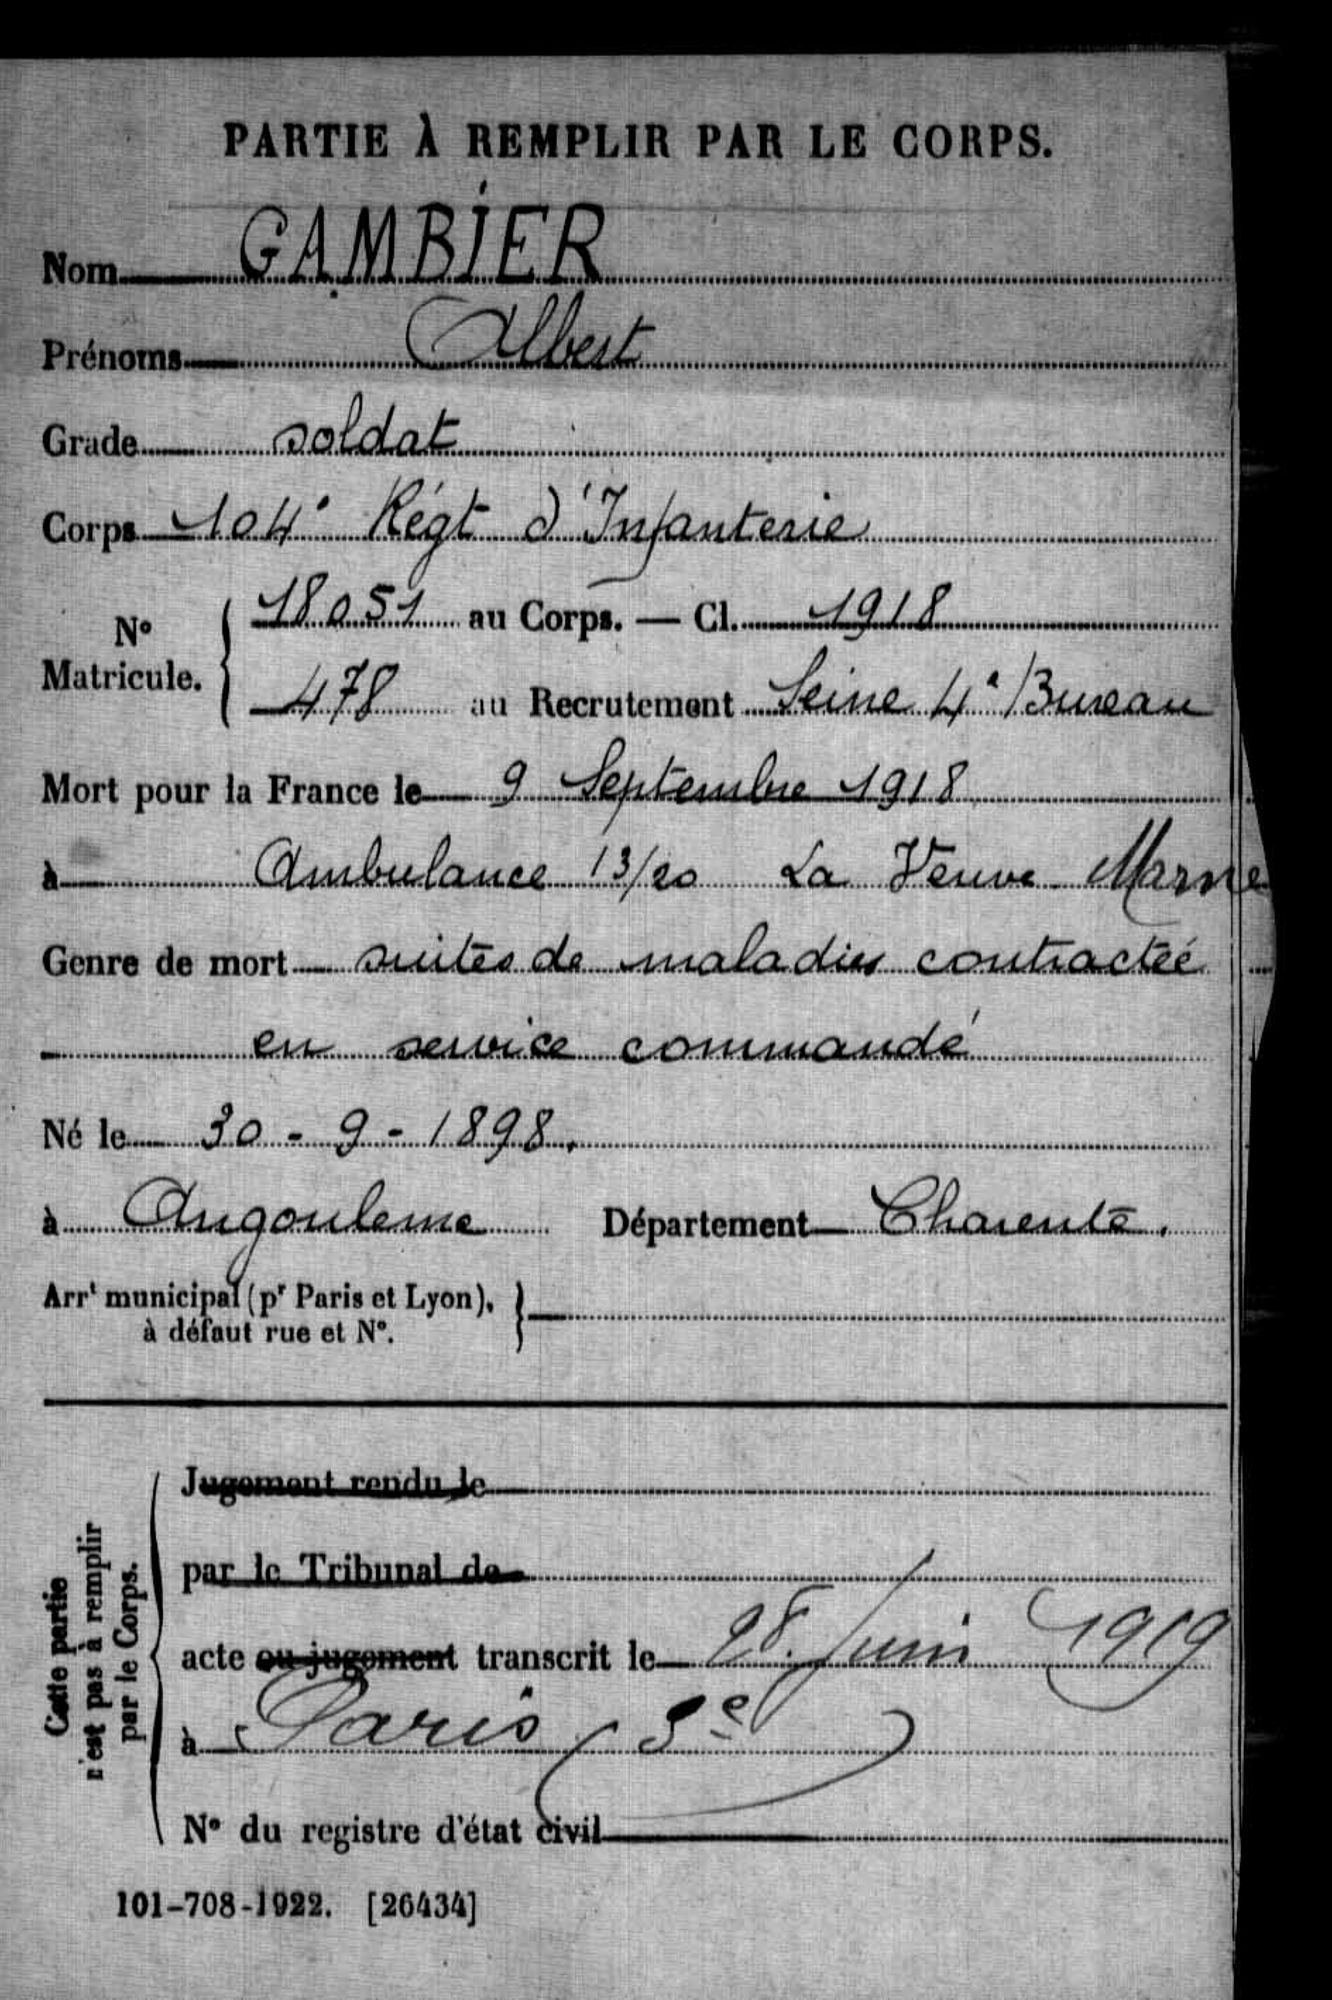 PARTIE À REMPLIR PAR LE CORPS.
Nom GAMBIER
Prénoms Albert
Grade soldat
Corps 104e Régt d'Infanterie
N° Matricule. 18051 au Corps. — Cl. 1918
478 au Recrutement Seine 4e Bureau
Mort pour la France le 9 Septembre 1918
à Ambulance 13/20 La Veuve Marne
Genre de mort suites de maladies contractée
en service commandé
Né le 30-9-1898.
à Angouleme Département Charente.
Arrt municipal (pr Paris et Lyon),
à défaut rue et N°.
Cette partie
n'est pas à remplir
par le Corps.
Jugement rendu le
par le Tribunal de
acte ou jugement transcrit le 28 Juin 1919
à Paris
N° du registre d'état civil
101-708-1922. [26434]